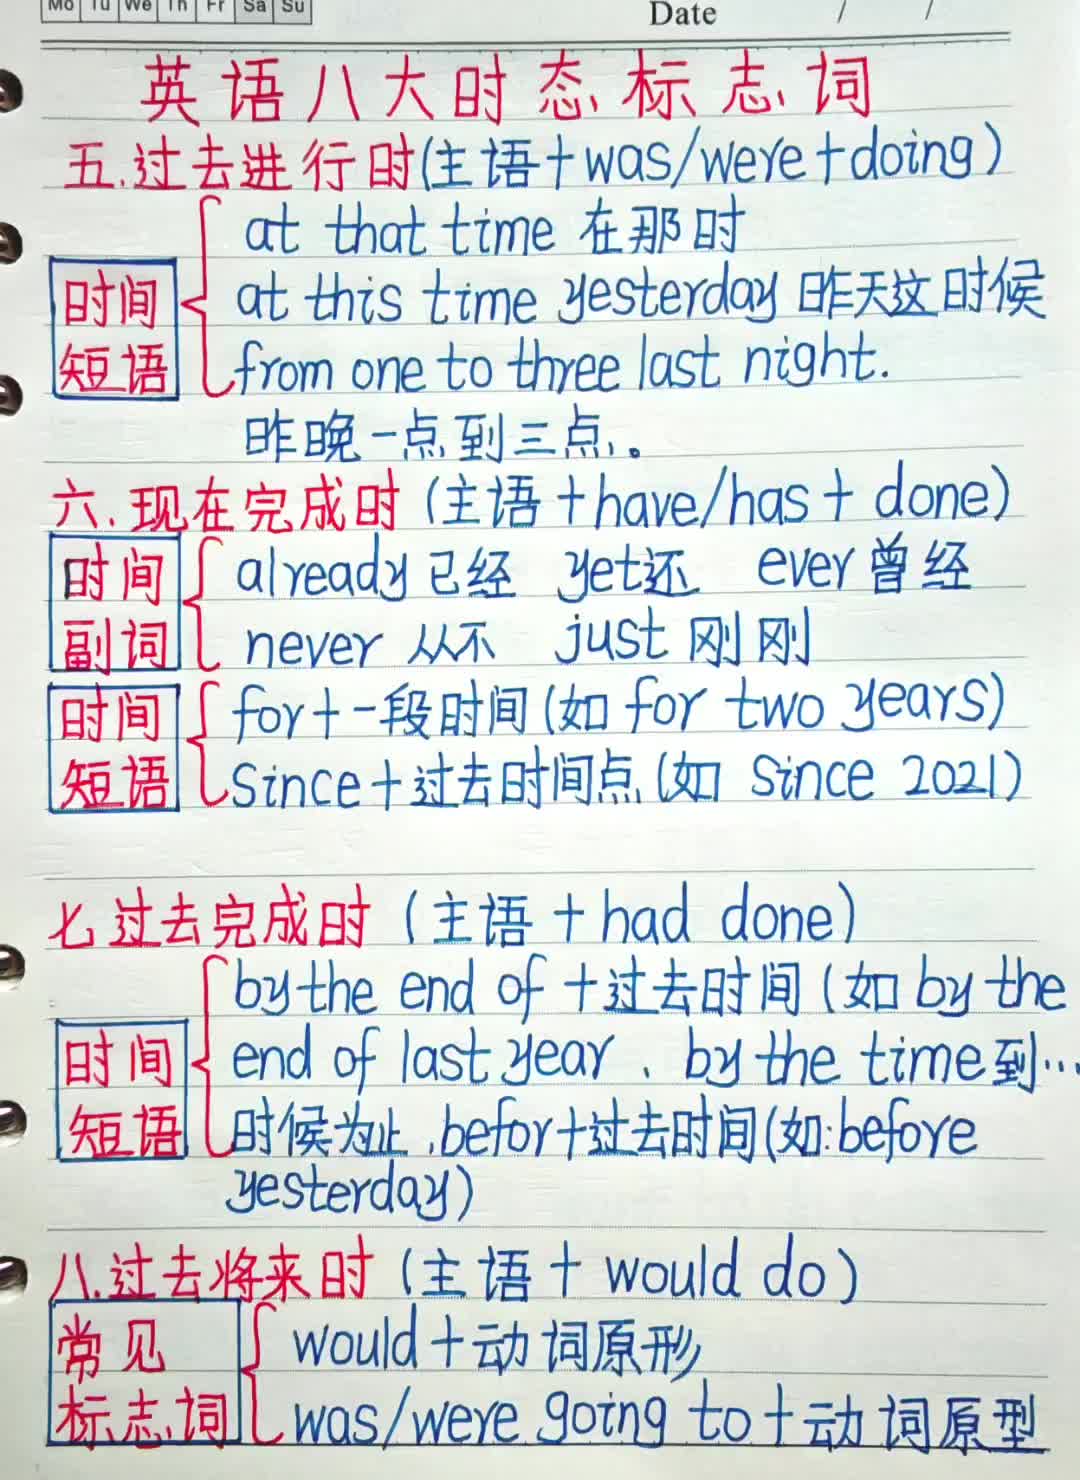 Mo Tu We Th Fr Sa Su
Date / /
英语八大时态标志词
五.过去进行时(主语+was/were+doing)
at that time 在那时
时间短语
at this time yesterday 昨天这时候
from one to three last night.
昨晚一点到三点。
六.现在完成时(主语+have/has+done)
时间副词
already已经 yet还 ever曾经
never 从不 just 刚刚
时间短语
for+一段时间(如 for two years)
Since+过去时间点(如 Since 2021)
七过去完成时(主语+had done)
by the end of +过去时间(如 by the
时间短语
end of last year . by the time到...
时候为止,befor+过去时间(如:before
yesterday)
八.过去将来时(主语+would do)
常见标志词
would+动词原形
was/were going to+动词原型